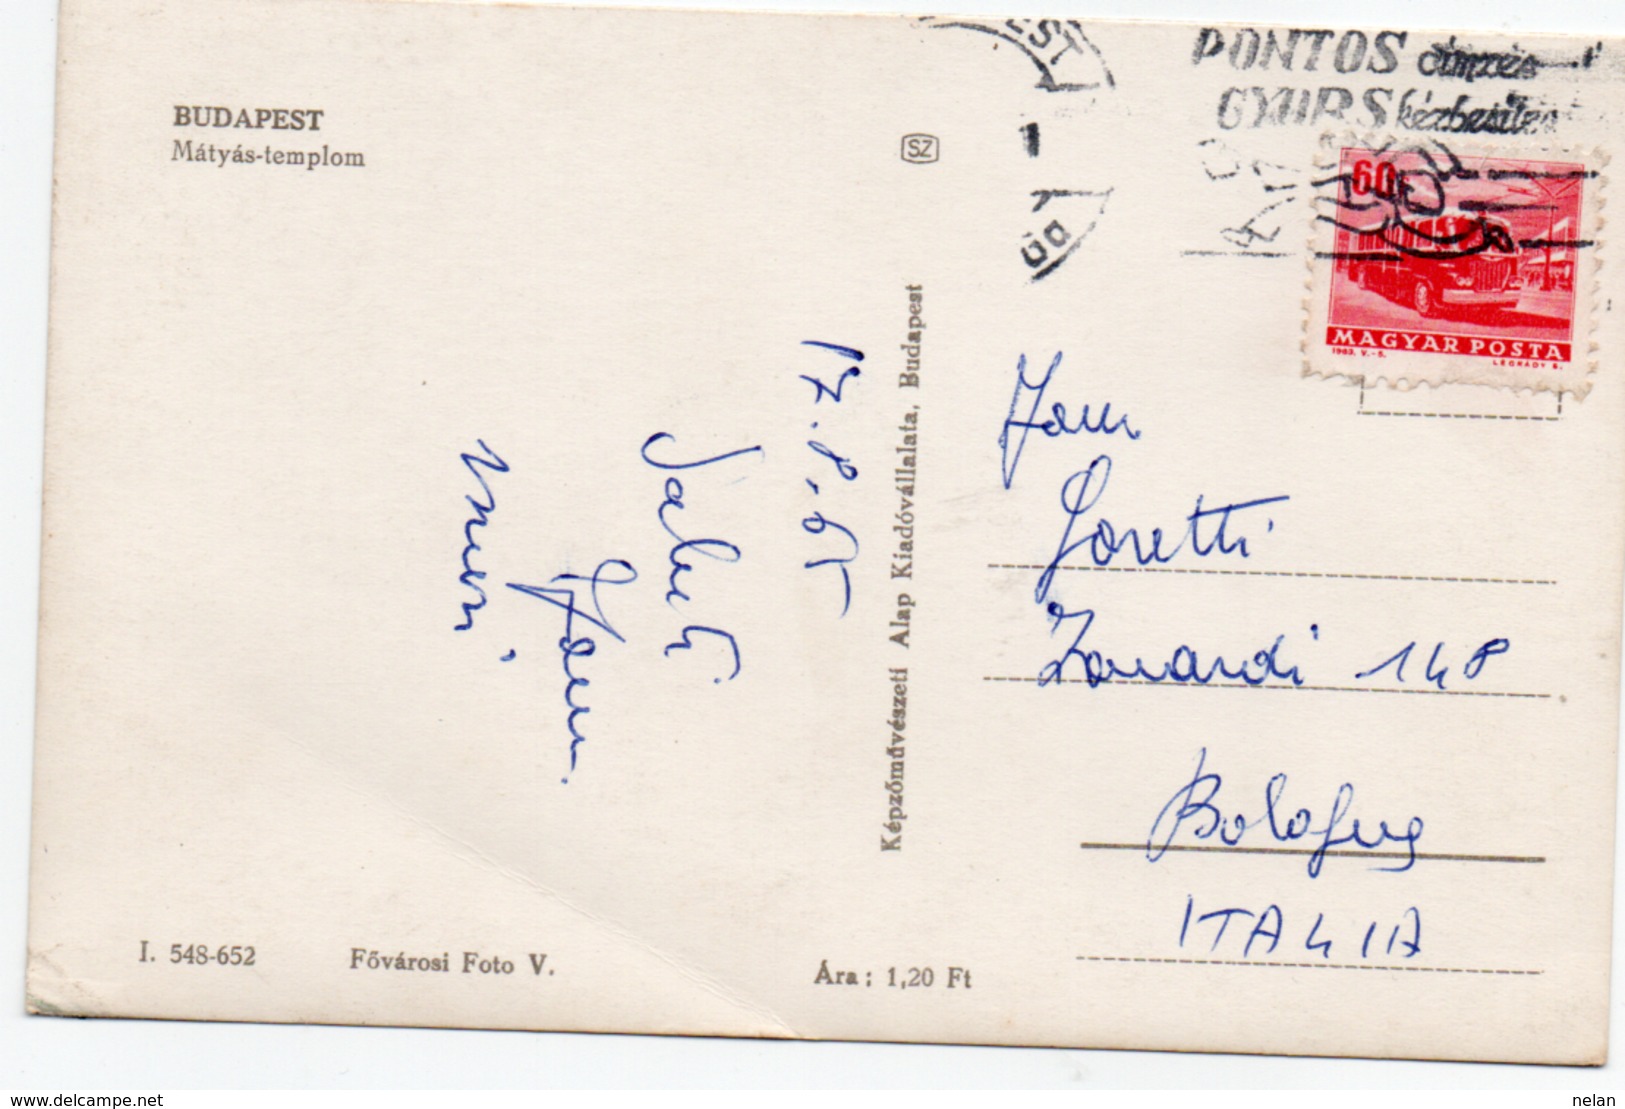 BUDAPEST
Mátyás-templom
SZ
PONTOS címzés
GYORS kézbesítés
EST
60f
MAGYAR POSTA
1963. V.-S.
LÉGRÁDY S.
17.8.65
Saluti
Képzőművészeti Alap Kiadóvállalata, Budapest
Loretti
Zanardi 148
Bologna
ITALIA
I. 548-652
Fővárosi Foto V.
Ára: 1,20 Ft
www.delcampe.net
nelan